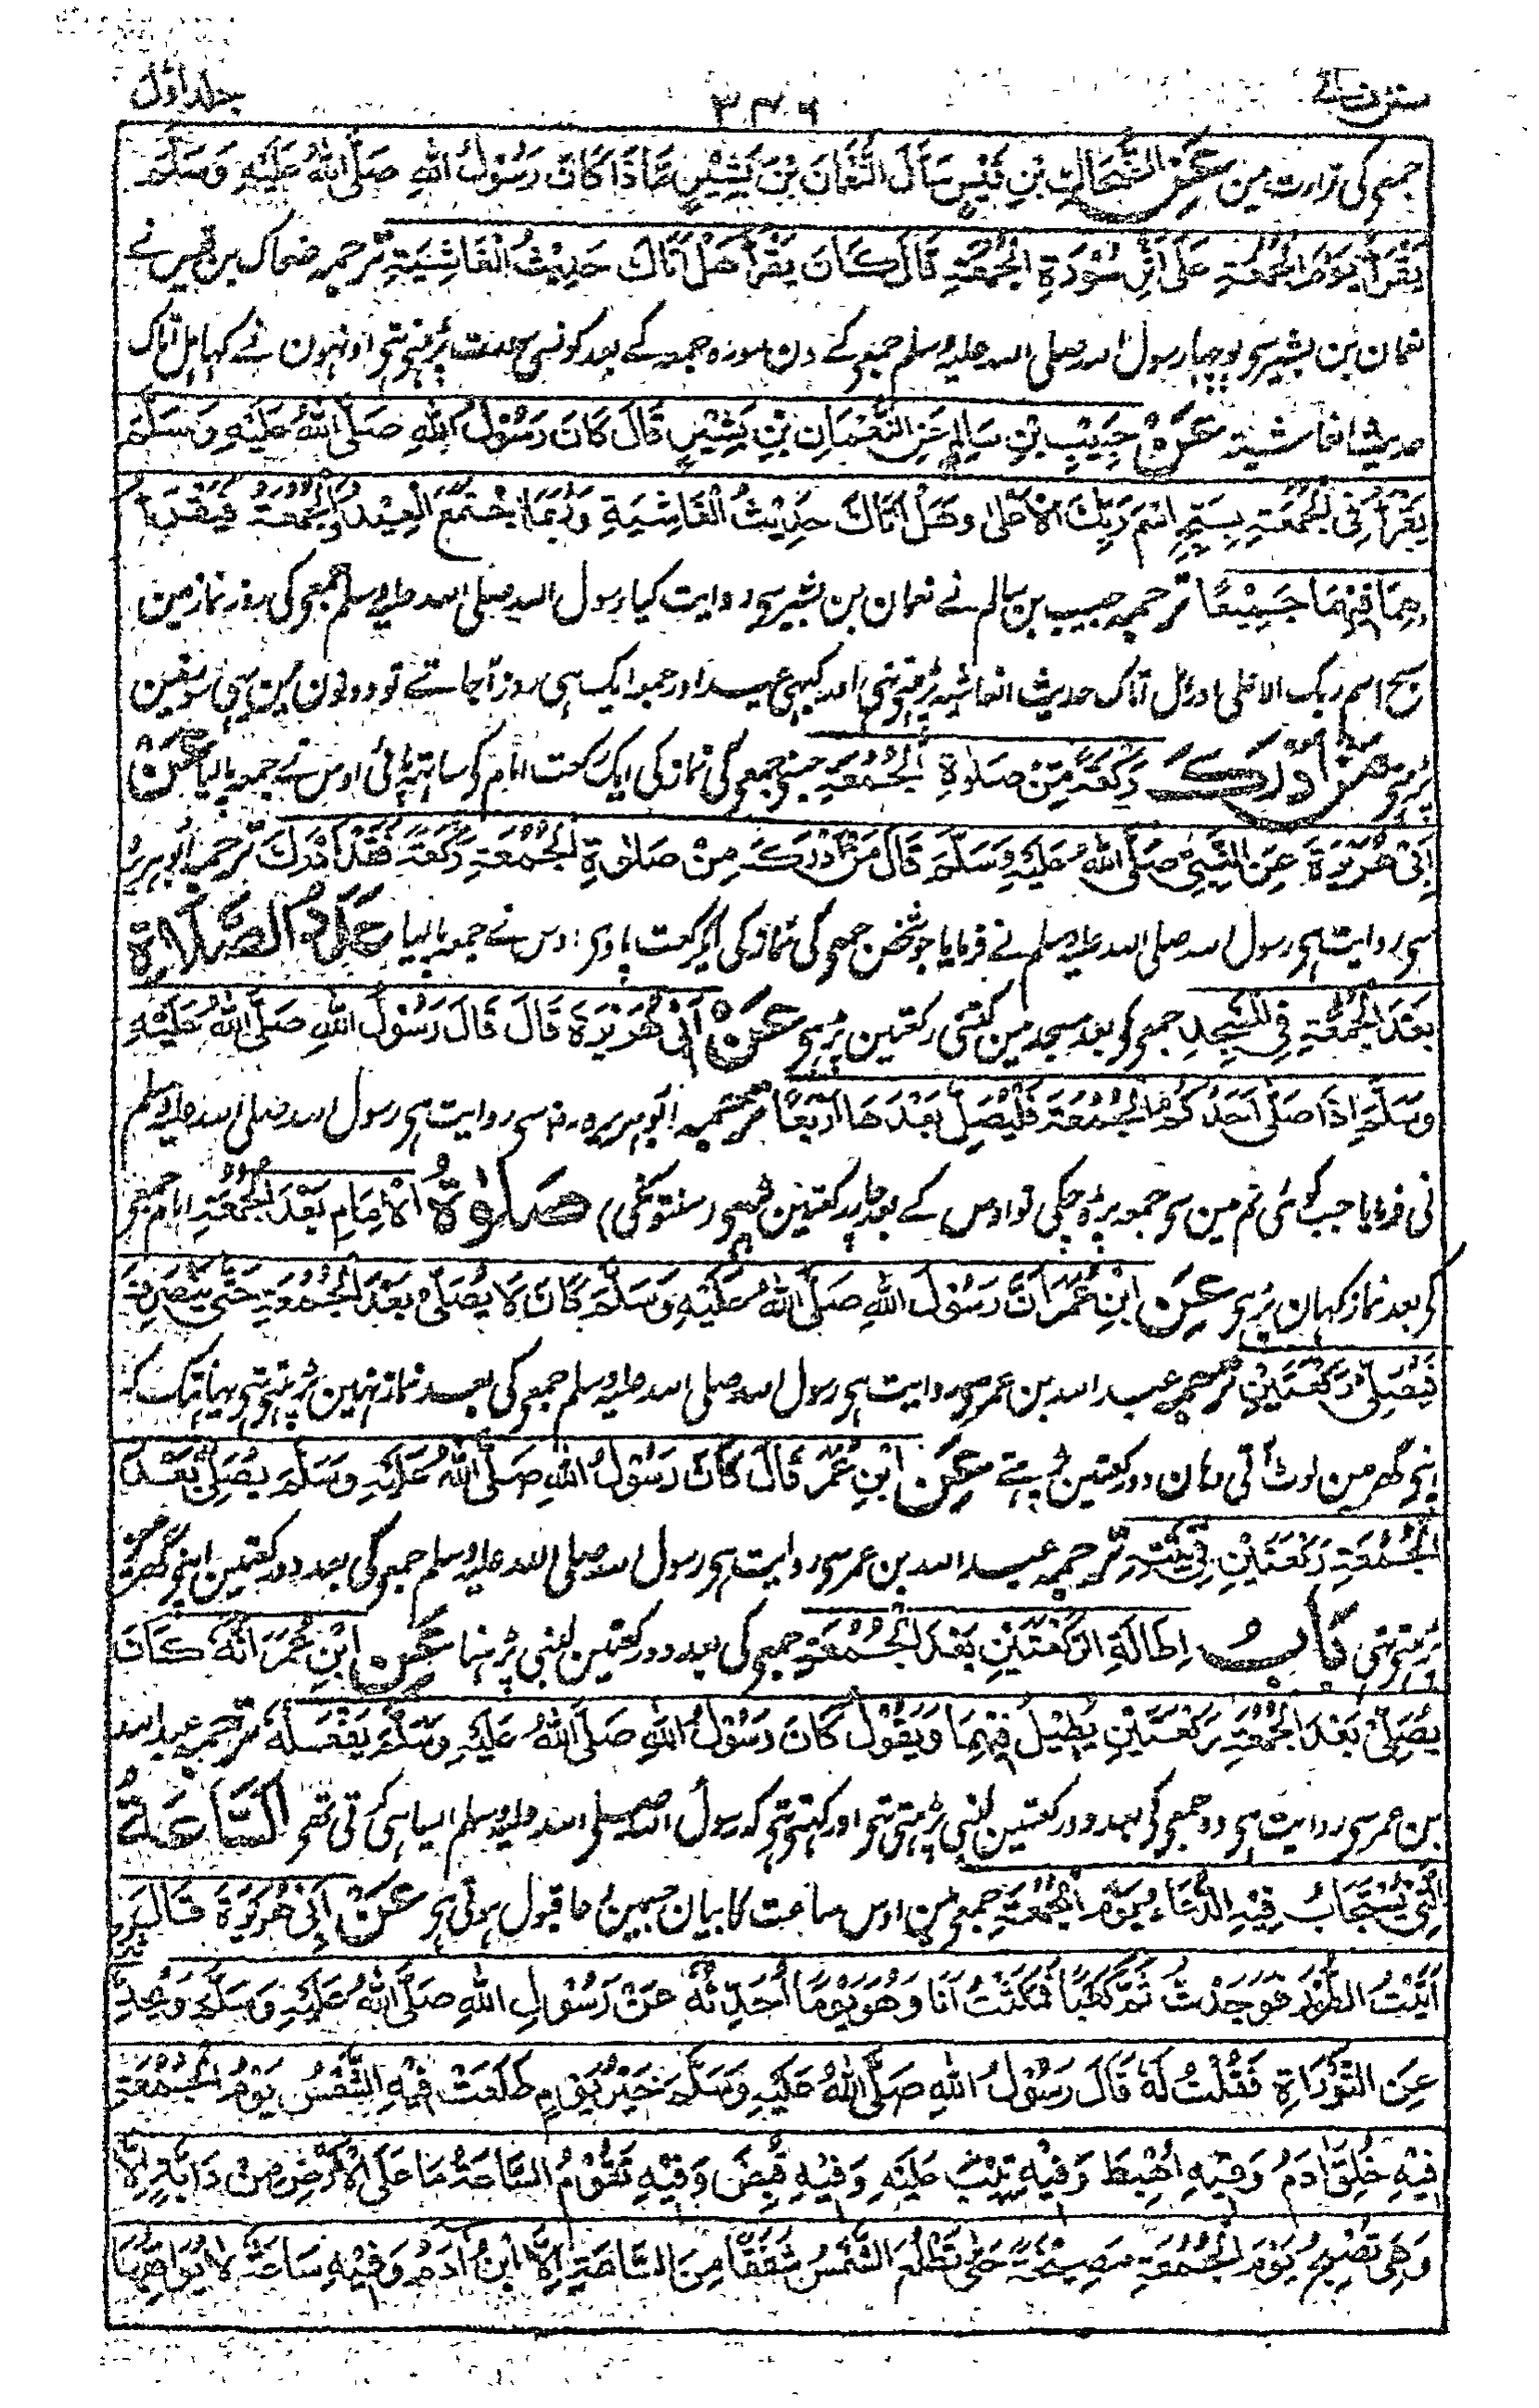 سنن نسائی ۳۴۶ جلد اول
جمعے کی قراءت مین عَنِ الضَّحَّاكِ بْنِ قَيْسٍ سَأَلَ النُّعْمَانَ بْنَ بَشِيْرٍ مَاذَا كَانَ رَسُوْلُ اللهِ صَلَّى اللهُ عَلَيْهِ وَسَلَّمَ
يَقْرَأُ يَوْمَ الْجُمُعَةِ عَلٰى اِثْرِ سُوْرَةِ الْجُمُعَةِ قَالَ كَانَ يَقْرَأُ هَلْ اَتَاكَ حَدِيْثُ الْغَاشِيَةِ ترجمہ ضحاک بن قیس نے
نعمان بن بشیر سے پوچھا رسول اللہ صلی اللہ علیہ وسلم جمعے کے دن سورہ جمعہ کے بعد کونسی سورت پڑہتے تہے اونہون نے کہا ہل اتاک
حدیث الغاشیۃ عَنْ حَبِيْبِ بْنِ سَالِمٍ عَنِ النُّعْمَانِ بْنِ بَشِيْرٍ قَالَ كَانَ رَسُوْلُ اللهِ صَلَّى اللهُ عَلَيْهِ وَسَلَّمَ
يَقْرَأُ فِي الْجُمُعَةِ بِسَبِّحِ اسْمَ رَبِّكَ الْاَعْلٰى وَهَلْ اَتَاكَ حَدِيْثُ الْغَاشِيَةِ وَرُبَمَا اجْتَمَعَ الْعِيْدُ وَالْجُمُعَةُ فَيَقْرَأُ
بِهِمَا فِيْهِمَا جَمِيْعًا ترجمہ حبیب بن سالم نے نعمان بن بشیر سے روایت کیا رسول اللہ صلی اللہ علیہ وسلم جمعے کی روز نماز مین
سبح اسم ربک الاعلی اور ہل اتاک حدیث الغاشیہ پڑہتے تہے اور کبہی عید اور جمعہ ایک ہی روز آجاتے تو دونون مین یہی سورتین
پڑہتے مَنْ اَدْرَكَ رَكْعَةً مِّنْ صَلٰوةِ الْجُمُعَةِ جسنے جمعے کی نماز کی ایک رکعت امام کے ساتہہ پائی اوس نے جمعہ پالیا عَنْ
اَبِيْ هُرَيْرَةَ عَنِ النَّبِيِّ صَلَّى اللهُ عَلَيْهِ وَسَلَّمَ قَالَ مَنْ اَدْرَكَ مِنْ صَلٰوةِ الْجُمُعَةِ رَكْعَةً فَقَدْ اَدْرَكَ ترجمہ ابوہریرہ
سے روایت ہے رسول اللہ صلی اللہ علیہ وسلم نے فرمایا جو شخص جمعے کی نماز کی ایک رکعت پاوے اوس نے جمعہ پالیا عَدَدُ الصَّلَاةِ
بَعْدَ الْجُمُعَةِ فِي الْمَسْجِدِ جمعے کے بعد مسجد مین کتنی رکعتین پڑہے عَنْ اَبِيْ هُرَيْرَةَ قَالَ قَالَ رَسُوْلُ اللهِ صَلَّى اللهُ عَلَيْهِ
وَسَلَّمَ اِذَا صَلّٰى اَحَدُكُمُ الْجُمُعَةَ فَلْيُصَلِّ بَعْدَهَا اَرْبَعًا ترجمہ ابوہریرہ رضہ سے روایت ہے رسول اللہ صلی اللہ علیہ وسلم
نے فرمایا جب کوئی تم مین سے جمعہ پڑہ چکے تو اوس کے بعد چار رکعتین پڑہے (سنتونکی) صَلٰوةُ الْاِمَامِ بَعْدَ الْجُمُعَةِ امام جمعے
کے بعد نماز کہان پڑہے عَنِ ابْنِ عُمَرَ اَنَّ رَسُوْلَ اللهِ صَلَّى اللهُ عَلَيْهِ وَسَلَّمَ كَانَ لَا يُصَلِّيْ بَعْدَ الْجُمُعَةِ حَتّٰى يَنْصَرِفَ
فَيُصَلِّيْ رَكْعَتَيْنِ ترجمہ عبد اللہ بن عمر سے روایت ہے رسول اللہ صلی اللہ علیہ وسلم جمعے کی بعد نماز نہین پڑہتے تہے یہانتک کہ
اپنے گھر مین لوٹ آتے وہان دو رکعتین پڑہتے عَنِ ابْنِ عُمَرَ قَالَ كَانَ رَسُوْلُ اللهِ صَلَّى اللهُ عَلَيْهِ وَسَلَّمَ يُصَلِّيْ بَعْدَ
الْجُمُعَةِ رَكْعَتَيْنِ فِيْ بَيْتِهِ ترجمہ عبد اللہ بن عمر سے روایت ہے رسول اللہ صلی اللہ علیہ وسلم جمعے کی بعد دو رکعتین اپنے گھر مین
پڑہتے تہے بَابُ اِطَالَةِ الرَّكْعَتَيْنِ بَعْدَ الْجُمُعَةِ جمعے کی بعد دو رکعتین لنبی پڑہنا عَنِ ابْنِ عُمَرَ اَنَّهُ كَانَ
يُصَلِّيْ بَعْدَ الْجُمُعَةِ رَكْعَتَيْنِ يُطِيْلُ فِيْهِمَا وَيَقُوْلُ كَانَ رَسُوْلُ اللهِ صَلَّى اللهُ عَلَيْهِ وَسَلَّمَ يَفْعَلُهُ ترجمہ عبد اللہ
بن عمر سے روایت ہے وہ جمعے کے بعد دو رکعتین لنبی پڑہتے تہے اور کہتے تہے کہ رسول اللہ صلی اللہ علیہ وسلم ایسا ہی کرتے تھے السَّاعَةُ
الَّتِيْ يُسْتَجَابُ فِيْهِ الدُّعَاءُ يَوْمَ الْجُمُعَةِ جمعے مین اوس ساعت کا بیان جسمین دعا قبول ہوتی ہے عَنْ اَبِيْ هُرَيْرَةَ قَالَ
اَتَيْتُ الطُّوْرَ فَوَجَدْتُ ثَمَّ كَعْبًا فَمَكَثْتُ اَنَا وَهُوَ يَوْمًا اُحَدِّثُهُ عَنْ رَسُوْلِ اللهِ صَلَّى اللهُ عَلَيْهِ وَسَلَّمَ وَيُحَدِّثُنِيْ
عَنِ التَّوْرَاةِ فَقُلْتُ لَهُ قَالَ رَسُوْلُ اللهِ صَلَّى اللهُ عَلَيْهِ وَسَلَّمَ خَيْرُ يَوْمٍ طَلَعَتْ فِيْهِ الشَّمْسُ يَوْمُ الْجُمُعَةِ
فِيْهِ خُلِقَ اٰدَمُ وَفِيْهِ اُهْبِطَ وَفِيْهِ تِيْبَ عَلَيْهِ وَفِيْهِ قُبِضَ وَفِيْهِ تَقُوْمُ السَّاعَةُ مَا عَلَى الْاَرْضِ مِنْ دَابَّةٍ اِلَّا
وَهِيَ تُصْبِحُ يَوْمَ الْجُمُعَةِ مُصِيْخَةً حَتّٰى تَطْلُعَ الشَّمْسُ شَفَقًا مِنَ السَّاعَةِ اِلَّا ابْنُ اٰدَمَ وَفِيْهِ سَاعَةٌ لَا يُوَافِقُهَا